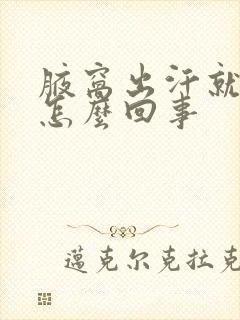 腋窩出汗就
怎麼回事
邁克尔克拉克